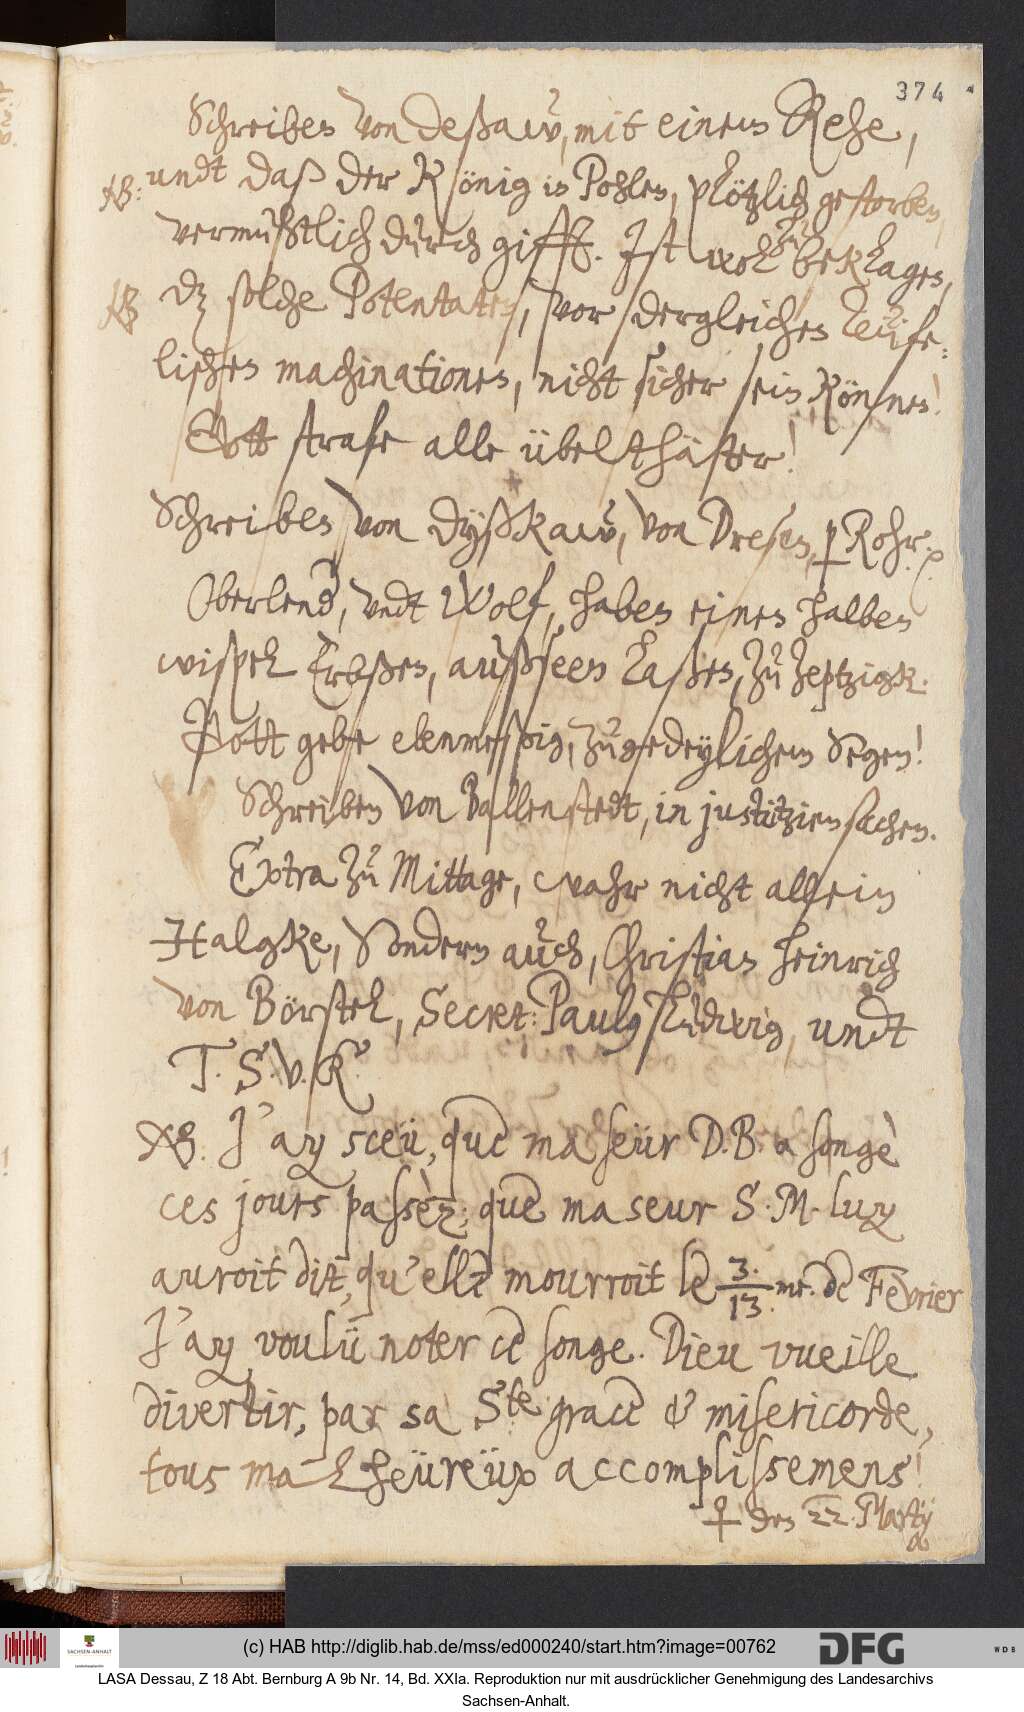 374
Schreiben von Deßaw, mit einem Rehe,
NB: undt daß der König in Pohlen, plötzlich gestorben,
vermuhtlich durch gifft. Ist wol zu beklagen,
NB dz solche Potentaten, vor dergleichen Teüfe-
lischen machinationen, nicht sicher sein können!
Gott strafe alle übelthäter!
Schreiben von Dyßkaw, von Dresen, Rohr. p
Oberlend, undt Wolf, haben einen halben
wispel Erbßen, außseen laßen, zu Zeptzigk.
Gott gebe ebenmeßig, zugedeylichem Segen!
Schreiben von Ballenstedt, in justitzien sachen.
Extra zu Mittage, wahr nicht allein
Halcke, Sondern auch, Christian Heinrich
von Börstel, Secret: Paulus Ludwig, undt
T. S. v. K.
NB. J'ay sceü, que ma seür D. B. a songè
ces jours passèz, que ma seur S. M. luy
auroit dit, qu'elle mourroit le 3./13. me. de Fevrier
J'ay voulü noter ce songe. Dieu vueille
divertir, par sa Ste. grace & misericorde,
tous malheüreüx accomplissemens!
♀ den 22. Martij
(c) HAB http://diglib.hab.de/mss/ed000240/start.htm?image=00762
SACHSEN-ANHALT
DFG
WDB
LASA Dessau, Z 18 Abt. Bernburg A 9b Nr. 14, Bd. XXIa. Reproduktion nur mit ausdrücklicher Genehmigung des Landesarchivs
Sachsen-Anhalt.